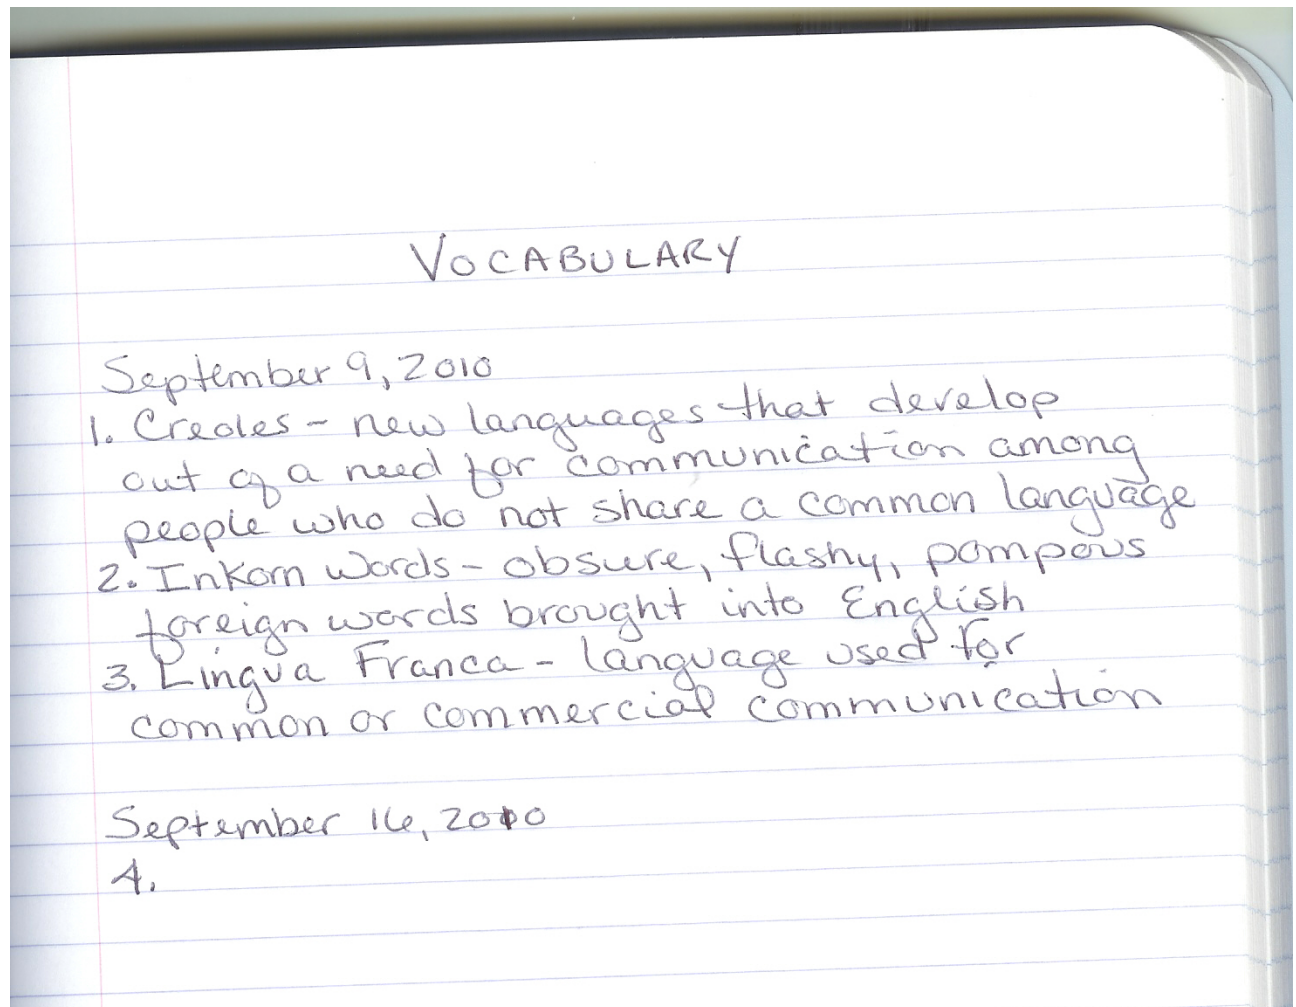 VOCABULARY
September 9, 2010
1. Creoles - new languages that develop
out of a need for communication among
people who do not share a common language
2. Inkorn Words - obsure, flashy, pompous
foreign words brought into English
3. Lingua Franca - language used for
common or commercial communication
September 16, 2010
4.